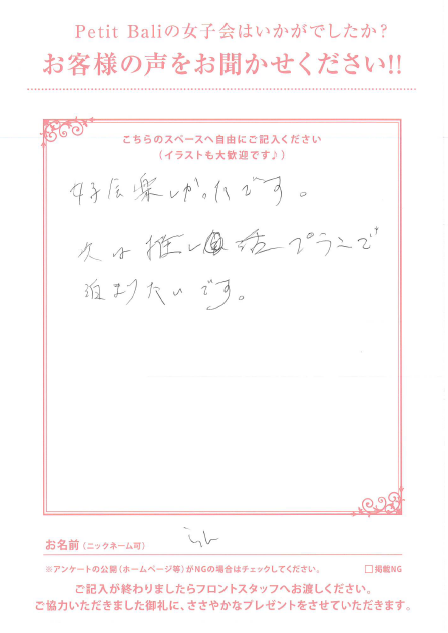 Petit Baliの女子会はいかがでしたか？
お客様の声をお聞かせください!!
こちらのスペースへ自由にご記入ください
（イラストも大歓迎です♪）
女子会楽しかったです。
次は推し活プランで
泊まりたいです。
お名前（ニックネーム可）
らん
※アンケートの公開（ホームページ等）がNGの場合はチェックしてください。
□掲載NG
ご記入が終わりましたらフロントスタッフへお渡しください。
ご協力いただきました御礼に、ささやかなプレゼントをさせていただきます。